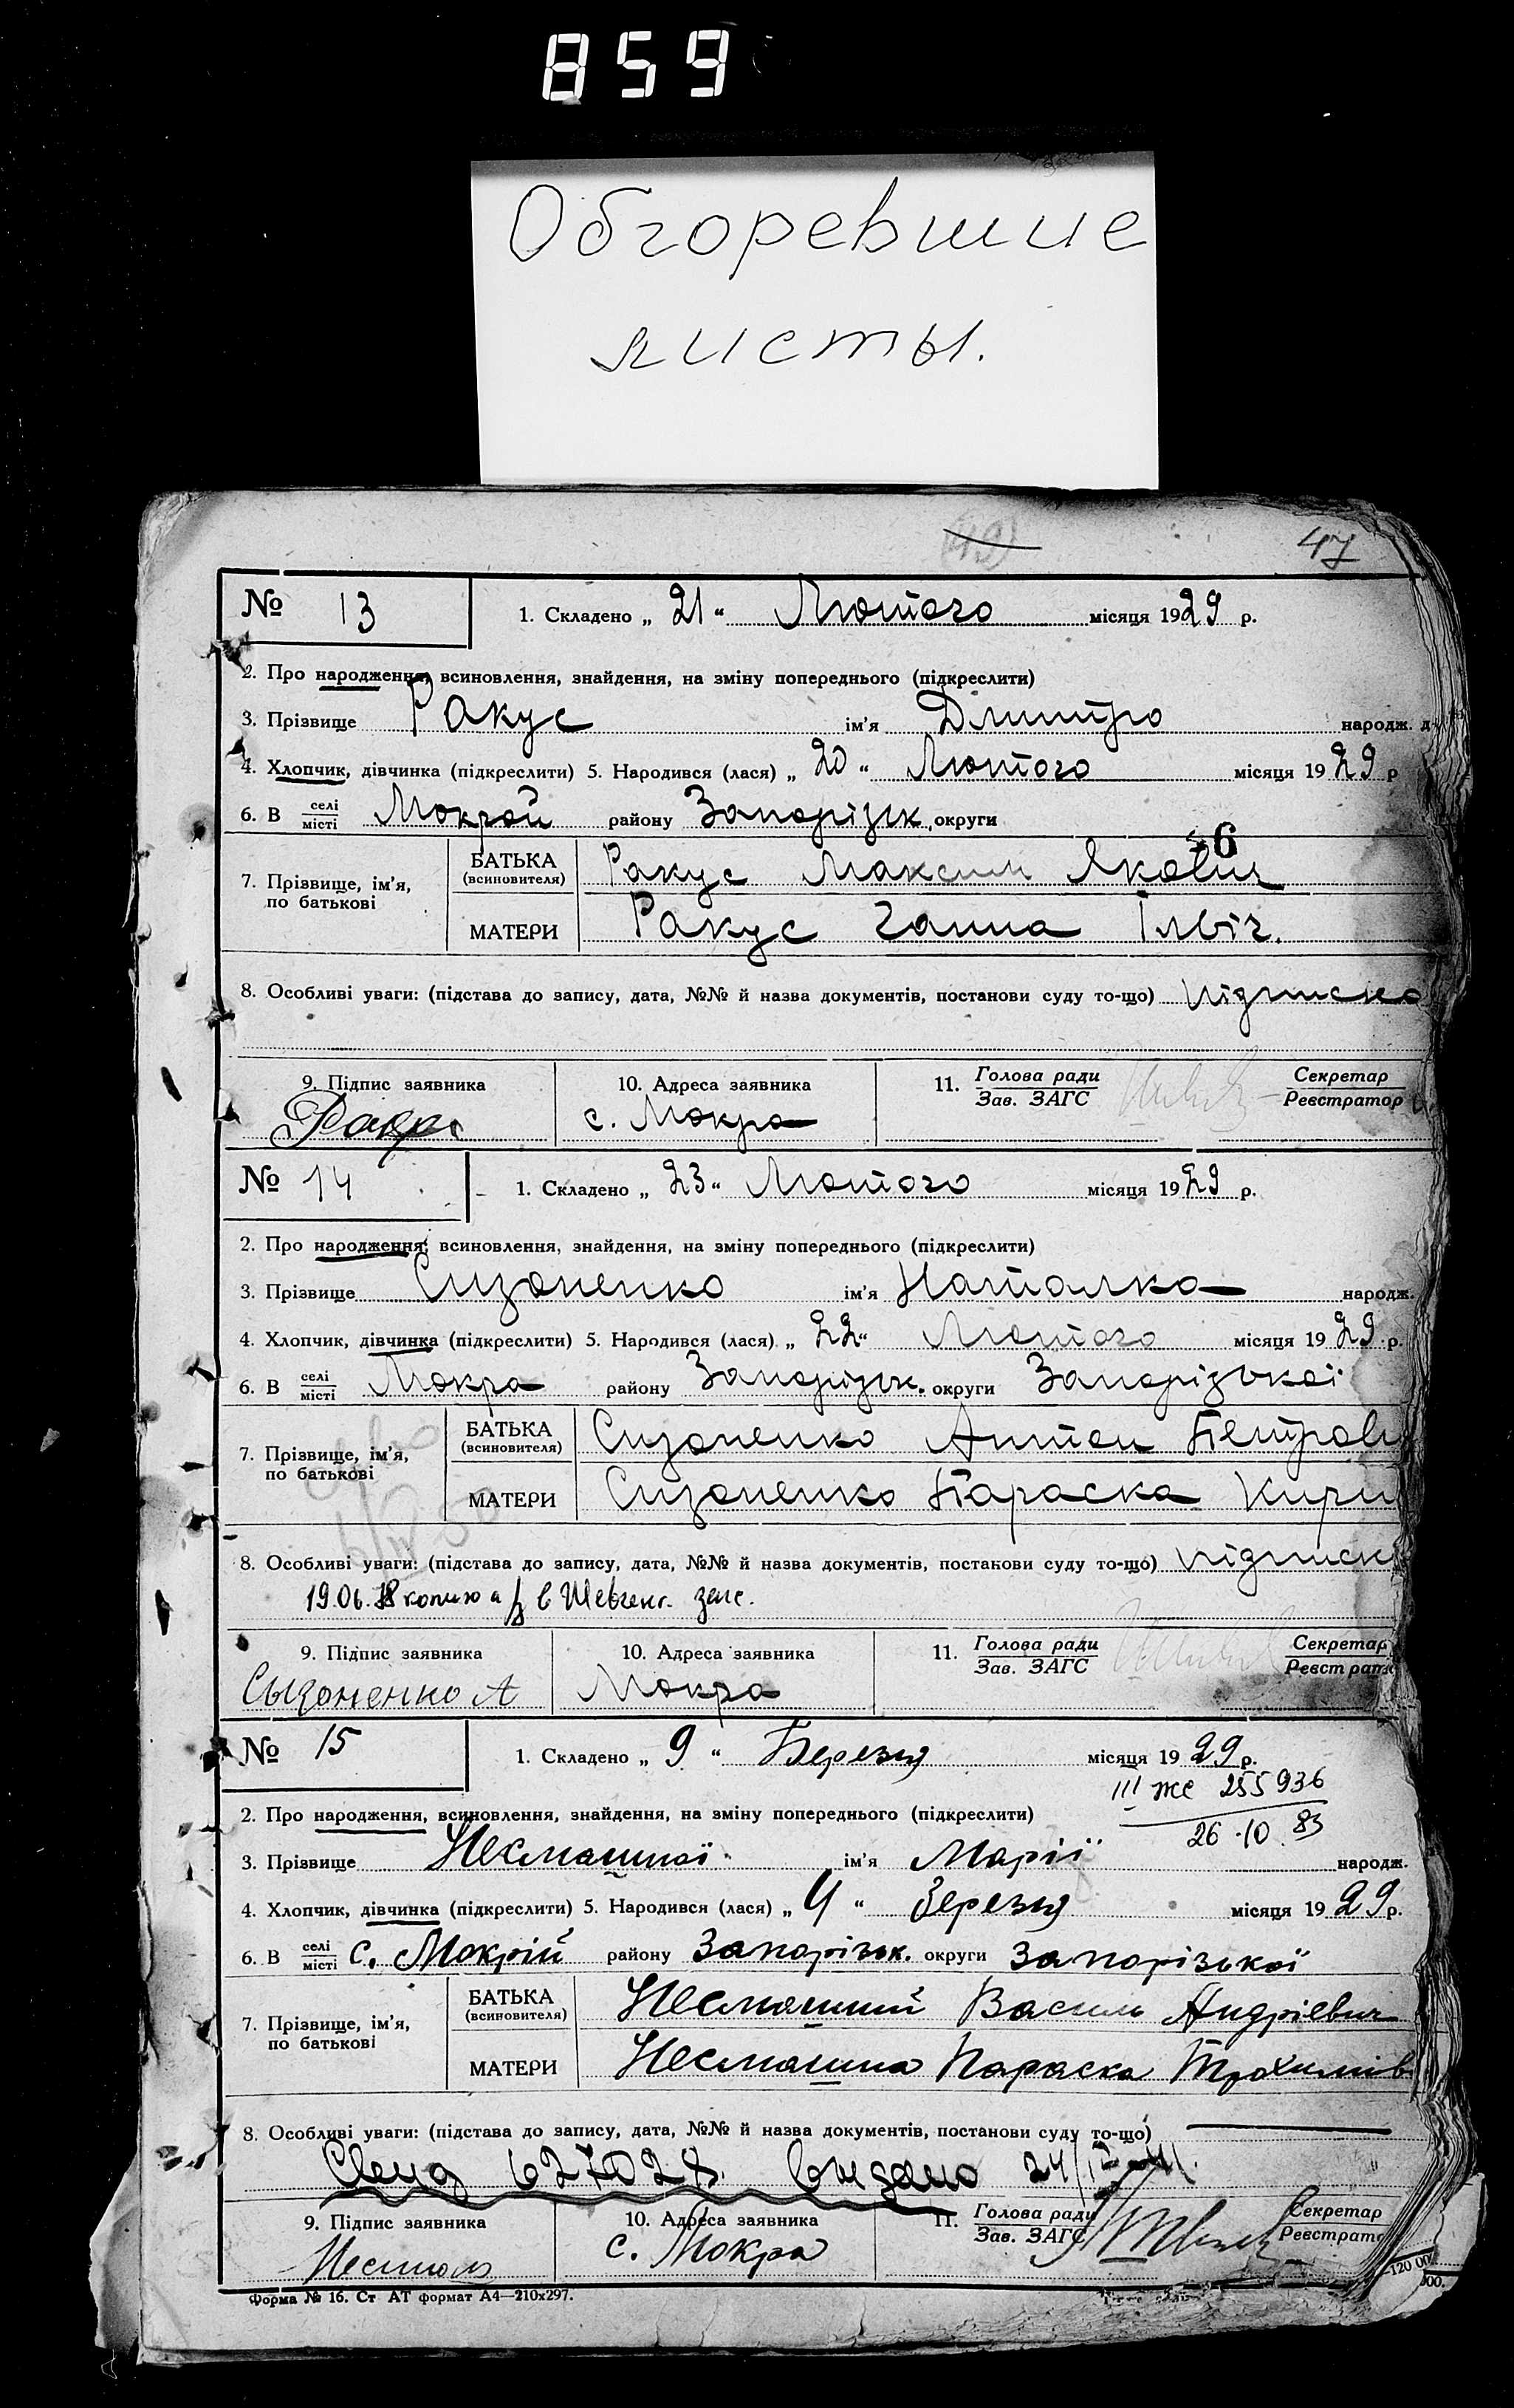 859
Обгоревшие
листы.
(49) 47
№ 13 1. Складено „ 21 “ Лютого місяця 1929 р.
2. Про народження, всиновлення, знайдення, на зміну попереднього (підкреслити)
3. Прізвище Ракус ім’я Дмитро народж. д
4. Хлопчик, дівчинка (підкреслити) 5. Народився (лася) „ 20 “ Лютого місяця 1929 р
6. В селі/місті Мокрой району Запорізьк. округи
6
7. Прізвище, ім’я, по батькові БАТЬКА (всиновителя) Ракус Максим Якович
МАТЕРИ Ракус Ганна Ільвіч.
8. Особливі уваги: (підстава до запису, дата, №№ й назва документів, постанови суду то-що) підписка
9. Підпис заявника 10. Адреса заявника 11. Голова ради / Зав. ЗАГС Секретар / Реєстратор
Ракус с. Мокра
№ 14 1. Складено „ 23 “ Лютого місяця 1929 р.
2. Про народження, всиновлення, знайдення, на зміну попереднього (підкреслити)
3. Прізвище Сизоненко ім’я Наталка народж.
4. Хлопчик, дівчинка (підкреслити) 5. Народився (лася) „ 22 “ Лютого місяця 1929 р.
6. В селі/місті Мокра району Запорізьк. округи Запорізької
7. Прізвище, ім’я, по батькові БАТЬКА (всиновителя) Сизоненко Антон Петрови
МАТЕРИ Сизоненко Параска Кири
8. Особливі уваги: (підстава до запису, дата, №№ й назва документів, постанови суду то-що) підписк
19.06.78 копию а/з в Шевченк. загс.
9. Підпис заявника 10. Адреса заявника 11. Голова ради / Зав. ЗАГС Секретар / Реєстрато
Сызоненко А Мокра
№ 15 1. Складено „ 9 “ Березня місяця 1929 р.
III ЖС 255936
2. Про народження, всиновлення, знайдення, на зміну попереднього (підкреслити)
26.10.83
3. Прізвище Несмашної ім’я Марії народж.
4. Хлопчик, дівчинка (підкреслити) 5. Народився (лася) „ 4 “ березня місяця 1929 р.
6. В селі/місті с. Мокрій району Запорізьк. округи Запорізької
7. Прізвище, ім’я, по батькові БАТЬКА (всиновителя) Несмашний Василь Андрієвич
МАТЕРИ Несмашна Параска Трохимів
8. Особливі уваги: (підстава до запису, дата, №№ й назва документів, постанови суду то-що)
627028 выдано
9. Підпис заявника 10. Адреса заявника 11. Голова ради / Зав. ЗАГС Секретар / Реєстрато
с. Мокра
Форма № 16. Ст АТ формат А4—210х297.
120 00